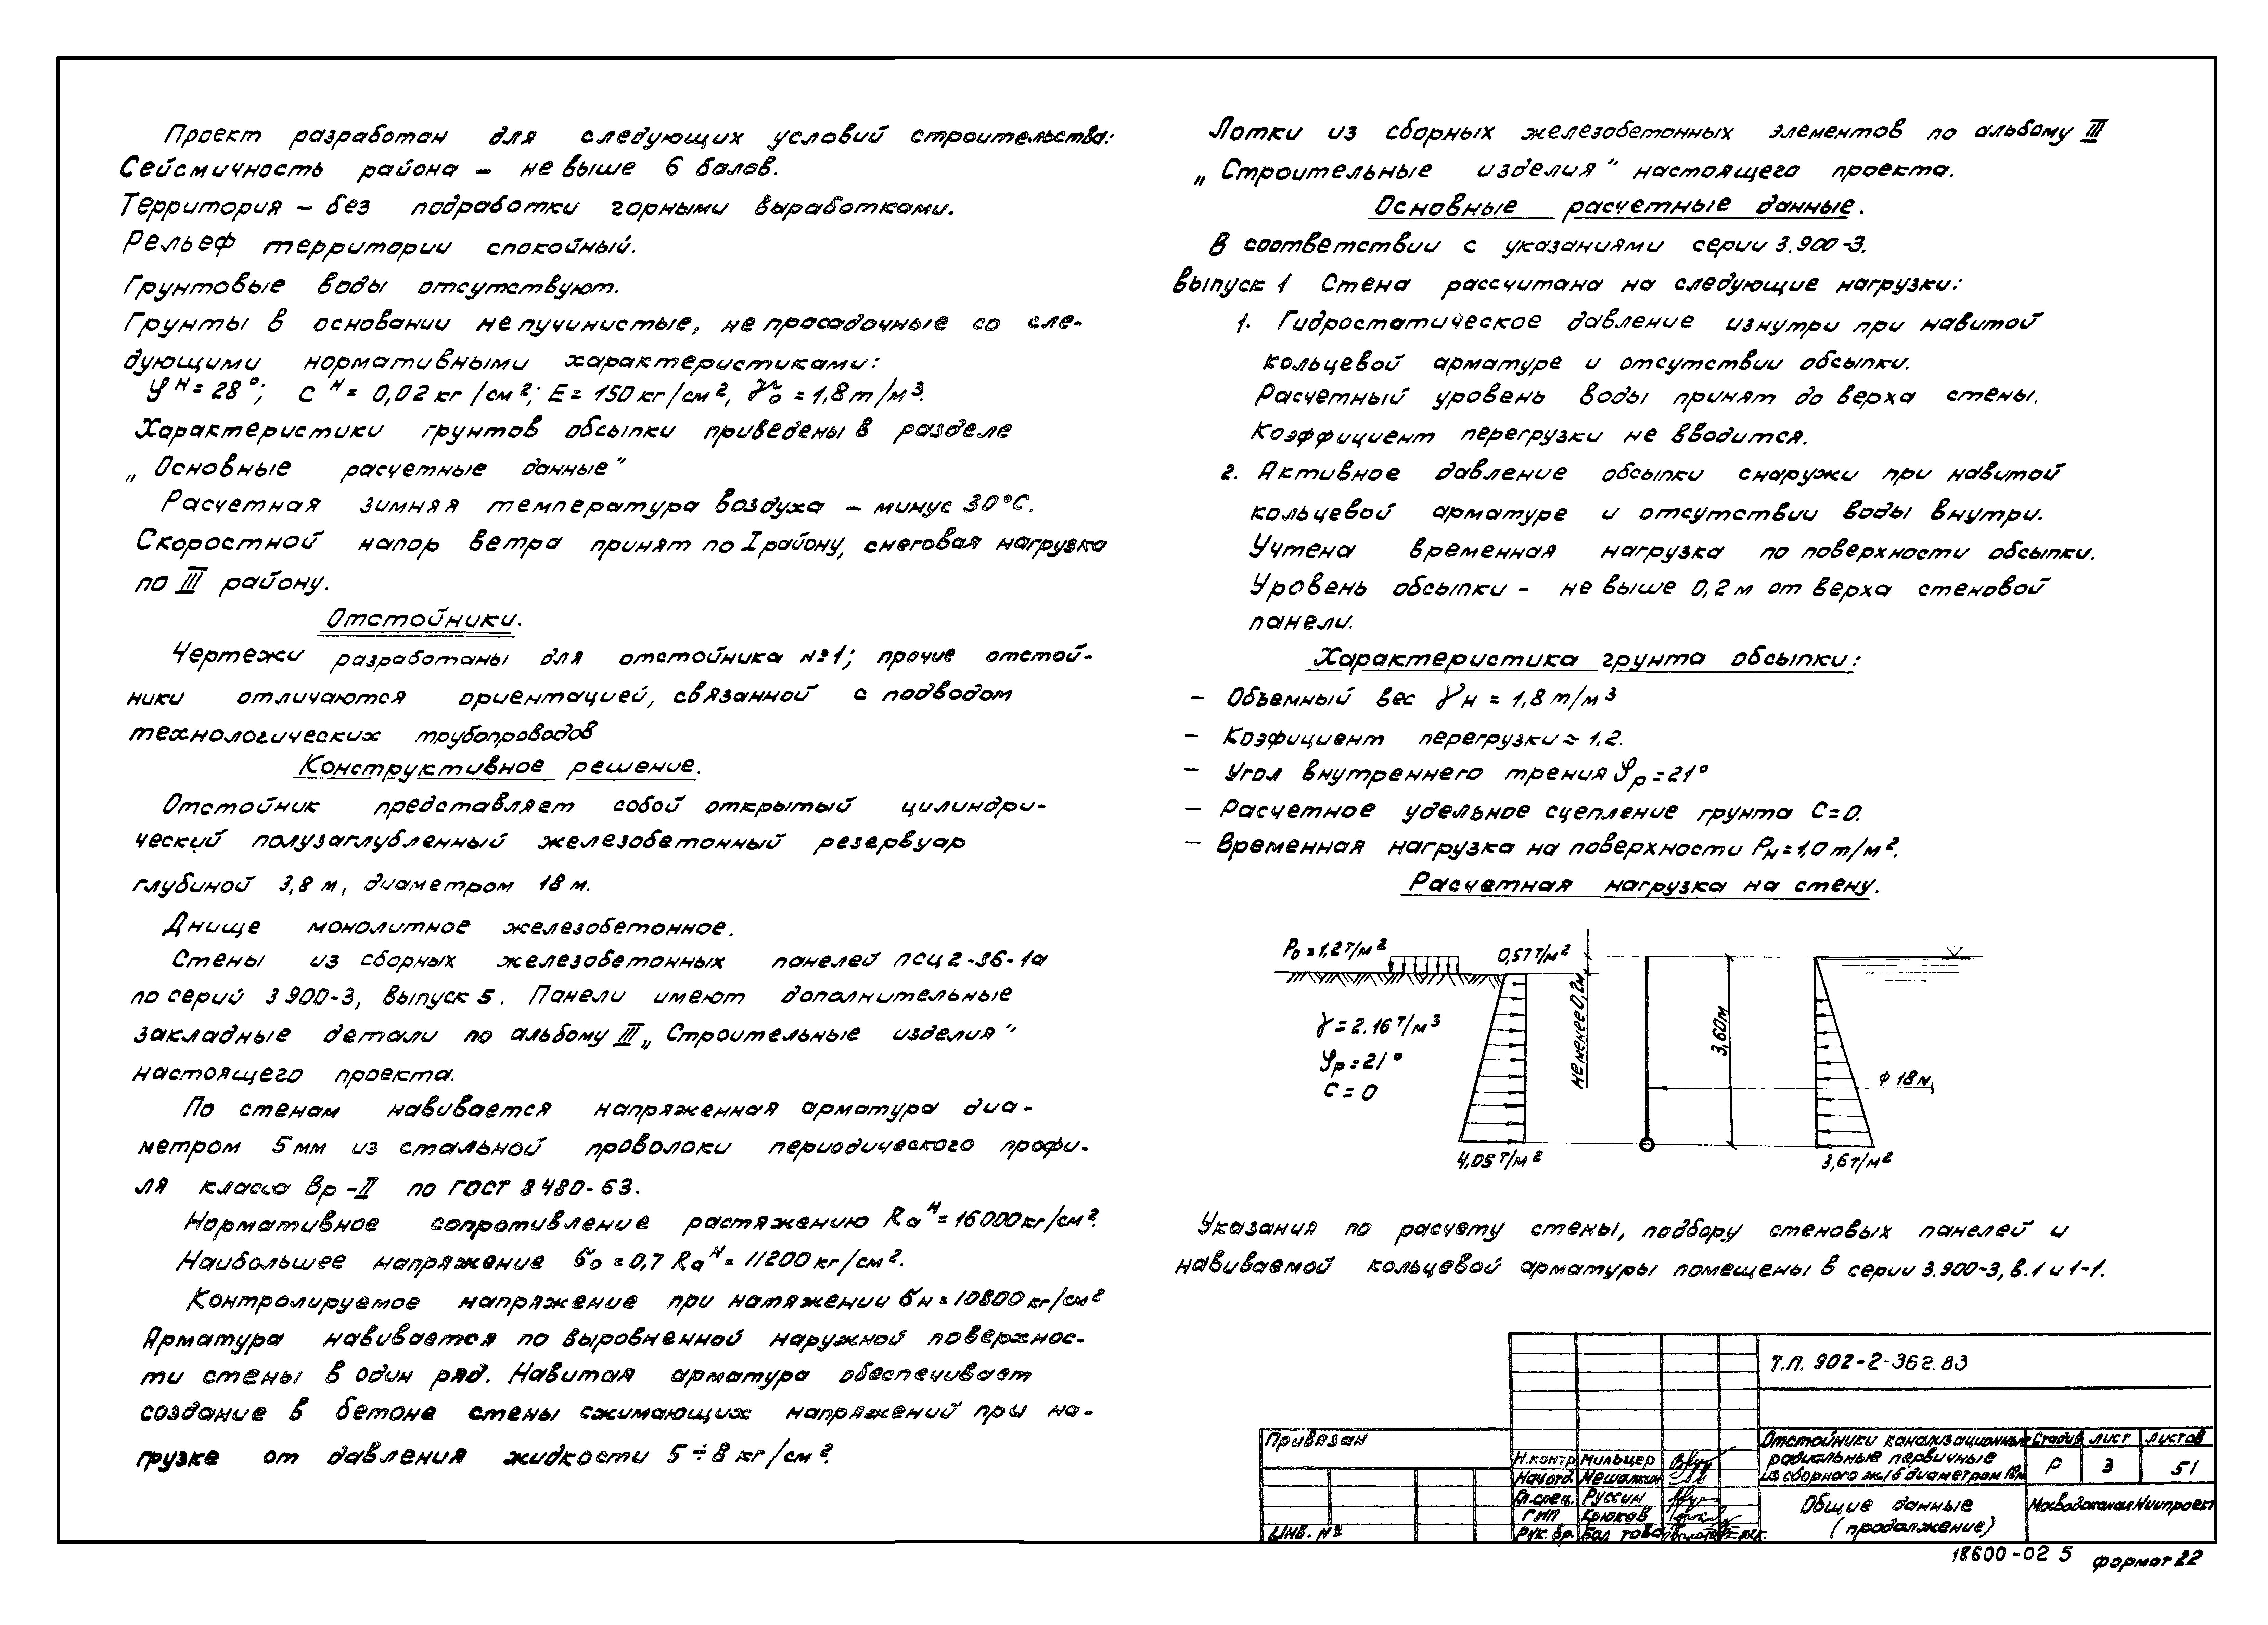 Проект разработан для следующих условий строительства:
Сейсмичность района – не выше 6 балов.
Территория – без подработки горными выработками.
Рельеф территории спокойный.
Грунтовые воды отсутствуют.
Грунты в основании непучинистые, непросадочные со сле-
дующими нормативными характеристиками:
φн = 28°; Cн = 0,02 кг/см²; E = 150 кг/см², γо = 1,8 т/м³.
Характеристики грунтов обсыпки приведены в разделе
„Основные расчетные данные"
Расчетная зимняя температура воздуха – минус 30°С.
Скоростной напор ветра принят по I району, снеговая нагрузка
по III району.
Отстойники.
Чертежи разработаны для отстойника №1; прочие отстой-
ники отличаются ориентацией, связанной с подводом
технологических трубопроводов
Конструктивное решение.
Отстойник представляет собой открытый цилиндри-
ческий полузаглубленный железобетонный резервуар
глубиной 3,8 м, диаметром 18 м.
Днище монолитное железобетонное.
Стены из сборных железобетонных панелей ПСЦ2-36-1а
по серий 3 900-3, Выпуск 5. Панели имеют дополнительные
закладные детали по альбому III „Строительные изделия"
настоящего проекта.
По стенам навивается напряженная арматура диа-
метром 5 мм из стальной проволоки периодического профи-
ля класса Вр-II по ГОСТ 8480-63.
Нормативное сопротивление растяжению Rан = 16000 кг/см².
Наибольшее напряжение σо = 0,7 Rан = 11200 кг/см².
Контролируемое напряжение при натяжении σн = 10800 кг/см²
Арматура навивается по выровненной наружной поверхнос-
ти стены в один ряд. Навитая арматура обеспечивает
создание в бетоне стены сжимающих напряжений при на-
грузке от давления жидкости 5÷8 кг/см².
Лотки из сборных железобетонных элементов по альбому III
„Строительные изделия" настоящего проекта.
Основные расчетные данные.
В соответствии с указаниями серии 3.900-3.
выпуск 1 Стена рассчитана на следующие нагрузки:
1. Гидростатическое давление изнутри при навитой
кольцевой арматуре и отсутствии обсыпки.
Расчетный уровень воды принят до верха стены.
Коэффициент перегрузки не вводится.
2. Активное давление обсыпки снаружи при навитой
кольцевой арматуре и отсутствии воды внутри.
Учтена временная нагрузка по поверхности обсыпки.
Уровень обсыпки – не выше 0,2 м от верха стеновой
панели.
Характеристика грунта обсыпки:
– Объемный вес γн = 1,8 т/м³
– Коэфициент перегрузки ≈ 1,2.
– Угол внутреннего трения φр = 21°
– Расчетное удельное сцепление грунта С=0.
– Временная нагрузка на поверхности Рн = 1,0 т/м².
Расчетная нагрузка на стену.
Ро = 1,2 т/м²
0,57 т/м²
γ = 2.16 т/м³
φр = 21°
С = 0
не менее 0,2м
3,60м
ф 18м
4,05 т/м²
3,6 т/м²
Указания по расчету стены, подбору стеновых панелей и
навиваемой кольцевой арматуры помещены в серии 3.900-3, в.1 и 1-1.
Т.П. 902-2-362.83
Привязан
Инв. №
Н.контр Мильцер
Нач.отд. Мешалкин
Гл.спец. Руссин
ГИП Крюков
Рук. бр.
Отстойники канализационные
радиальные первичные
из сборного ж/б диаметром 18м
Стадия Лист Листов
Р 3 51
Общие данные
(продолжение)
МосводоканалНИИпроект
18600-02 5
формат 22